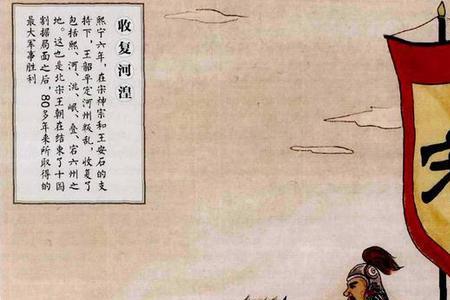 收复河湟
熙宁六年，在宋神宗和王安石的支
持下，王韶平定河州叛乱，收复了
包括熙、河、洮、岷、叠、宕六州之
地。这也是北宋王朝在结束了十国
割据局面之后，80多年来所取得的
最大军事胜利